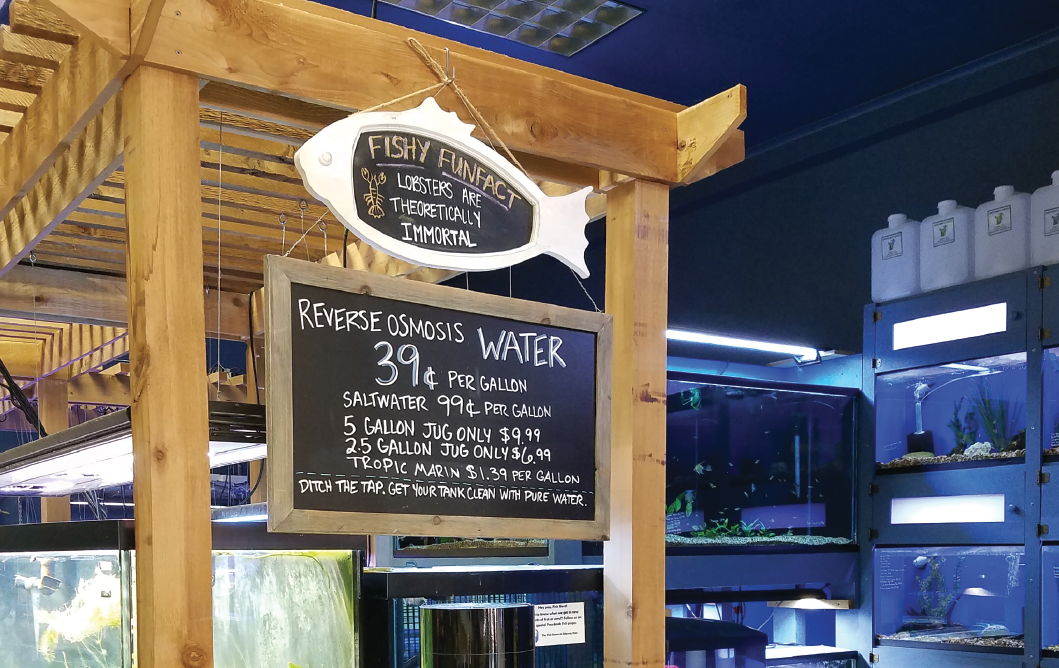 FISHY FUNFACT
LOBSTERS ARE
THEORETICALLY
IMMORTAL
REVERSE OSMOSIS WATER
39¢ PER GALLON
SALTWATER 99¢ PER GALLON
5 GALLON JUG ONLY $9.99
2.5 GALLON JUG ONLY $6.99
TROPIC MARIN $1.39 PER GALLON
DITCH THE TAP. GET YOUR TANK CLEAN WITH PURE WATER.